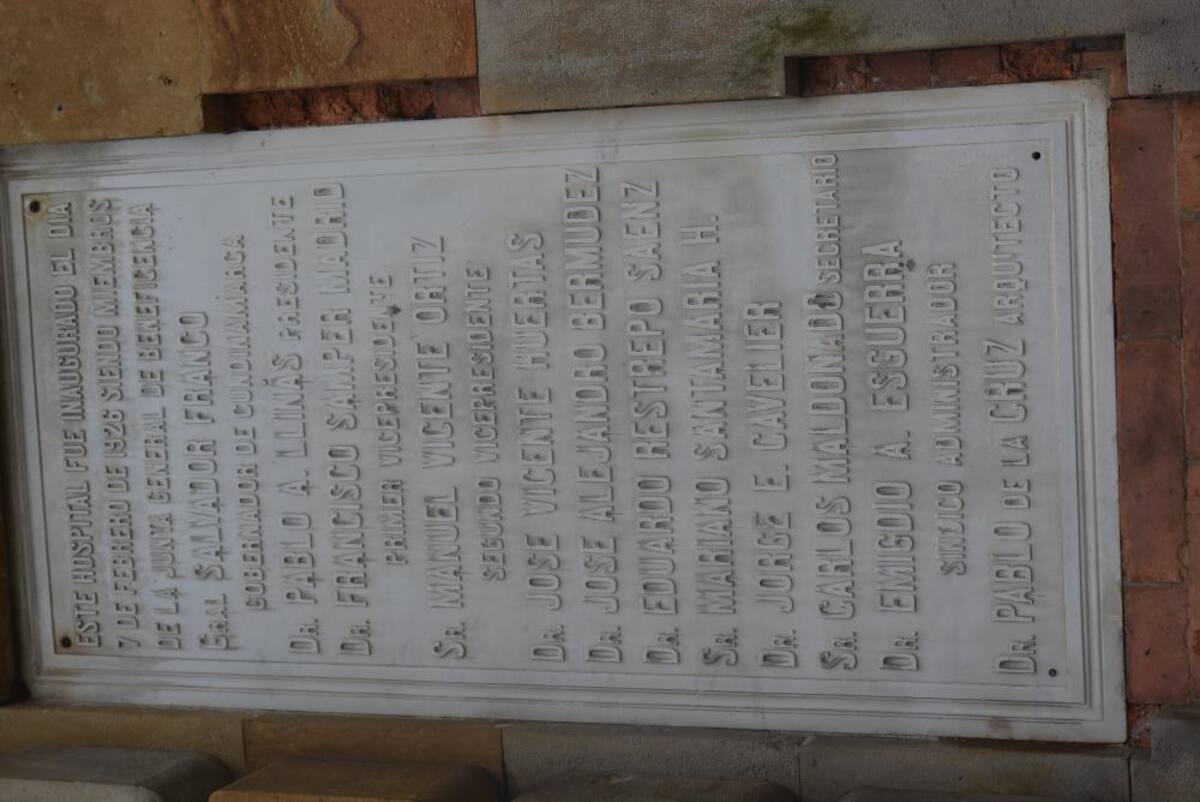 ESTE HOSPITAL FUE INAUGURADO EL DIA
7 DE FEBRERO DE 1926 SIENDO MIEMBROS
DE LA JUNTA GENERAL DE BENEFICENCIA
GRAL SALVADOR FRANCO
GOBERNADOR DE CUNDINAMARCA
DR. PABLO A. LLINÁS PRESIDENTE
DR. FRANCISCO SAMPER MADRID
PRIMER VICEPRESIDENTE
SR. MANUEL VICENTE ORTIZ
SEGUNDO VICEPRESIDENTE
DR. JOSE VICENTE HUERTAS
DR. JOSE ALEJANDRO BERMUDEZ
DR. EDUARDO RESTREPO SAENZ
SR. MARIANO SANTAMARIA H.
DR. JORGE E. CAVELIER
SR. CARLOS MALDONADO SECRETARIO
DR. EMIGDIO A. ESGUERRA
SINDICO ADMINISTRADOR
DR. PABLO DE LA CRUZ ARQUITECTO